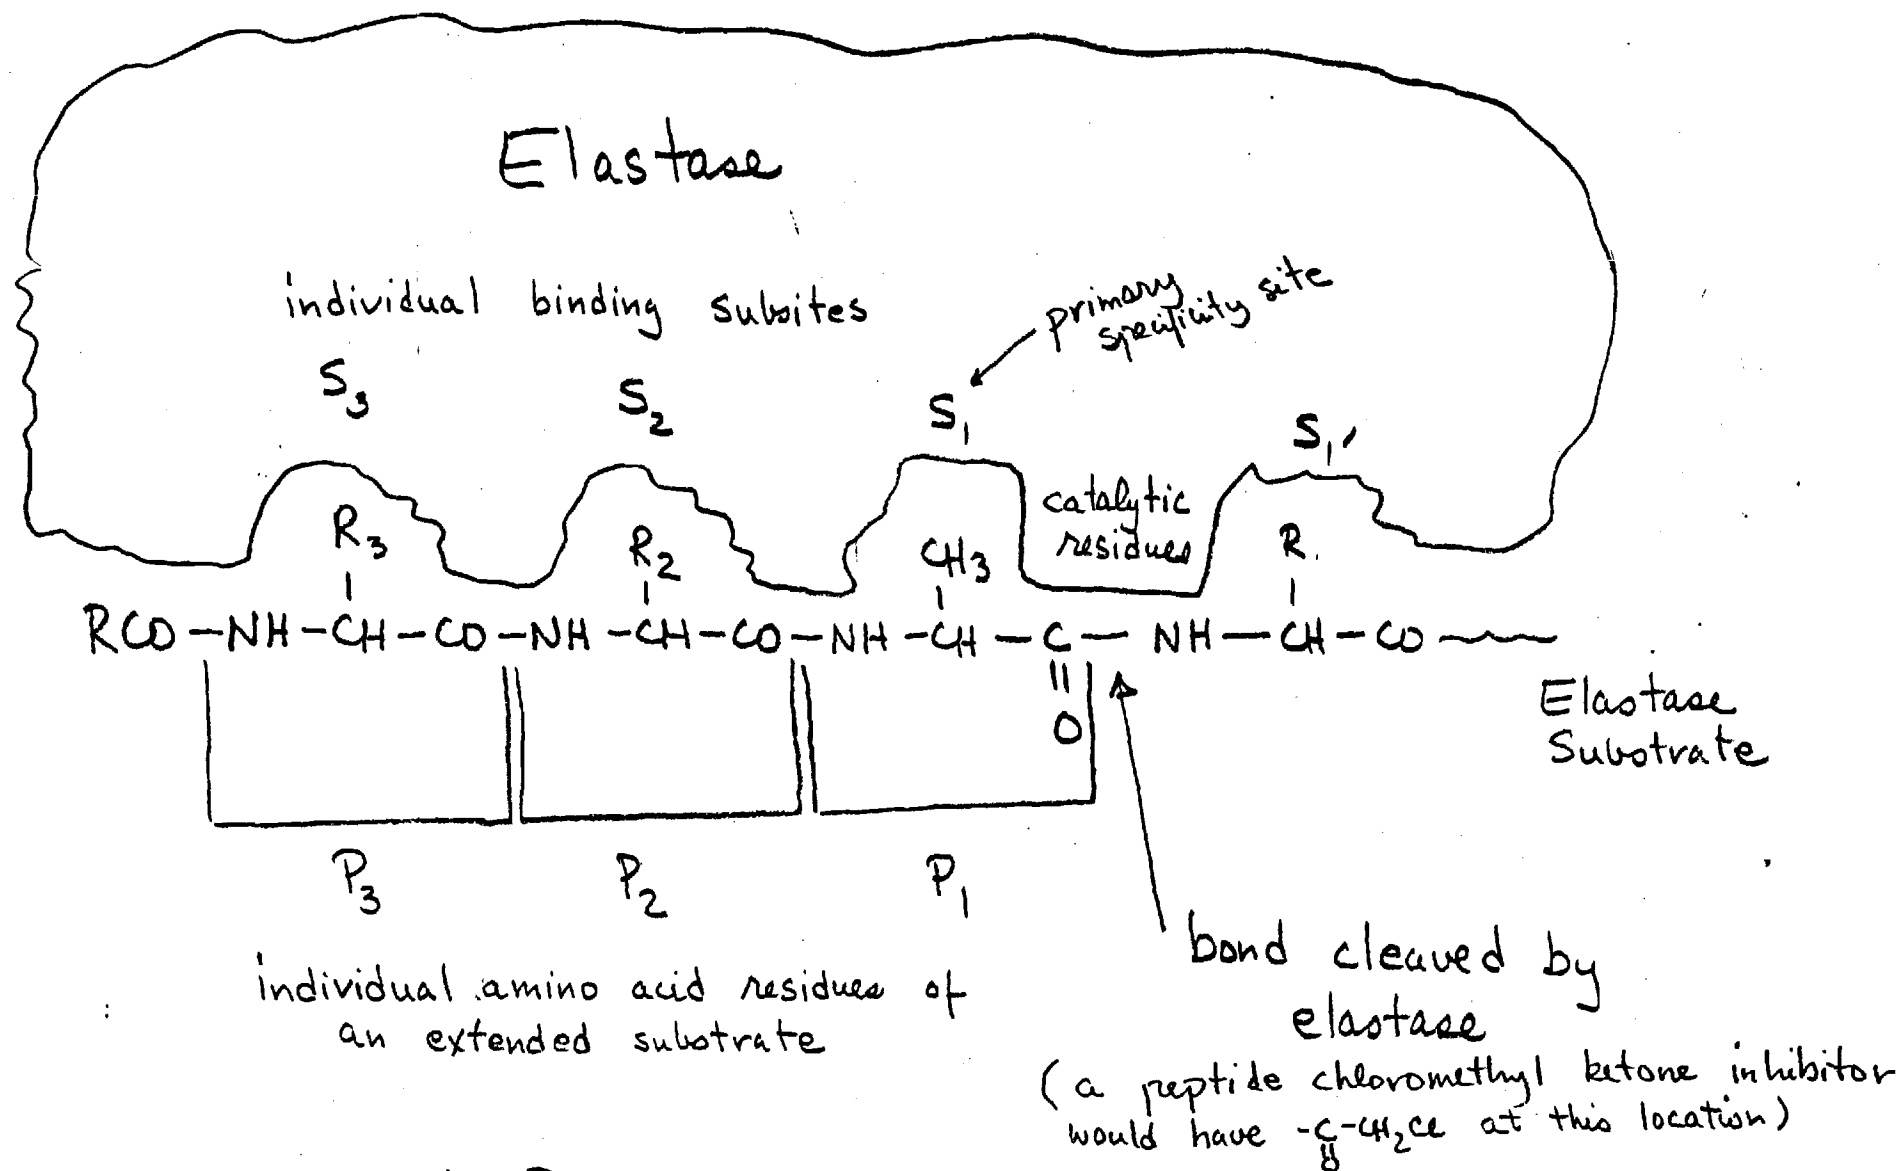 Elastase
individual binding subsites
primary
specificity site
S₃
S₂
S₁
S₁′
R₃
R₂
CH₃
catalytic
residues
R
RCO–NH–CH–CO–NH–CH–CO–NH–CH–C–NH–CH–CO
O
Elastase
Substrate
P₃
P₂
P₁
individual amino acid residues of
an extended substrate
bond cleaved by
elastase
(a peptide chloromethyl ketone inhibitor
would have -C-CH₂Cl at this location)
O